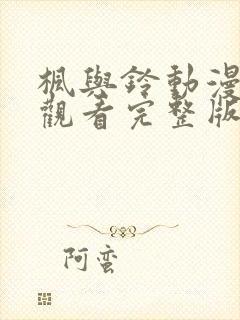 楓與鈴動漫
觀看完整版
阿蛮